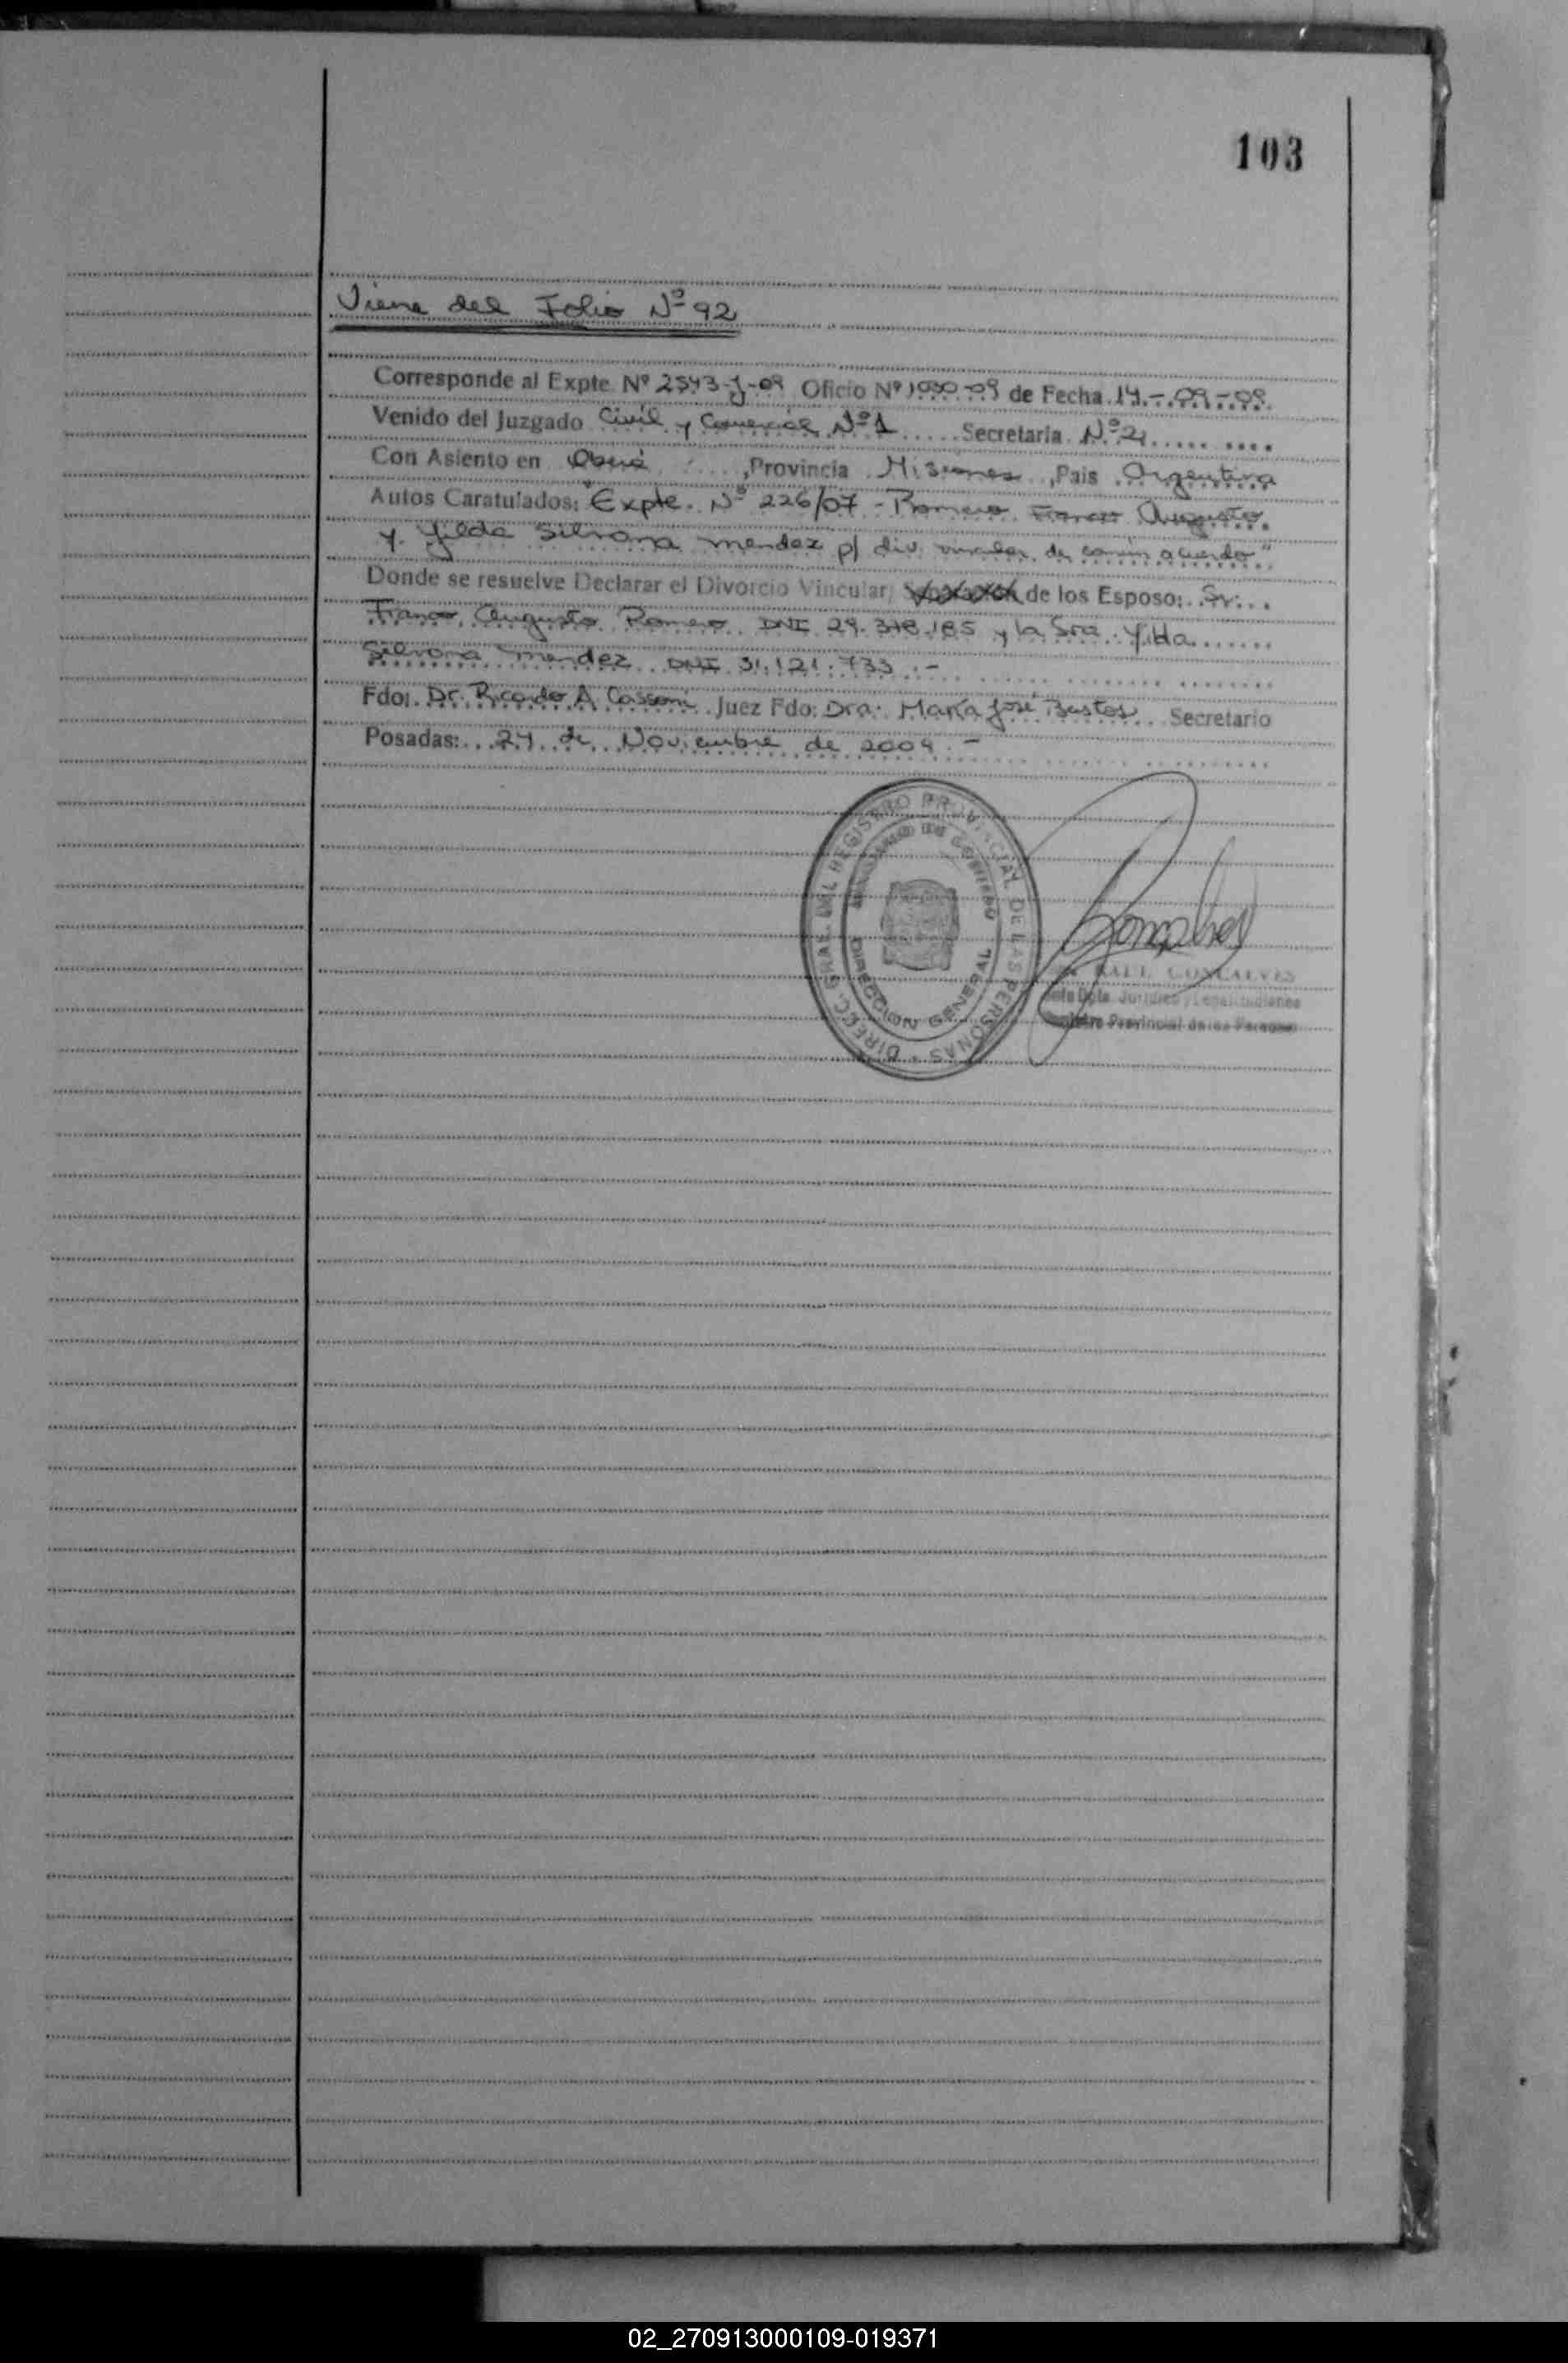 103
Viene del Folio Nº 92
Corresponde al Expte. Nº 2543-J-09 Oficio Nº 1030-09 de Fecha 14.-09-09
Venido del Juzgado Civil y Comercial Nº1 Secretaria Nº 2
Con Asiento en Oberá, Provincia Misiones, Pais Argentina
Autos Caratulados: "Expte. Nº 226/07 - Romero Franco Augusto
y Yilda Silvana Mendez p/ div. vincular de común acuerdo"
Donde se resuelve Declarar el Divorcio Vincular, de los Esposo: Sr.
Franco Augusto Romero DNI 29.318.185 y la Sra. Yilda
Silvana Mendez DNI 31.121.733.-
Fdo: Dr. Ricardo A. Casconi Juez Fdo: Dra: María José Bustos Secretario
Posadas: 24 de Noviembre de 2009.-
DIRECC. GRAL. DEL REGISTRO PROVINCIAL DE LAS PERSONAS
MINISTERIO DE GOBIERNO
DIRECCION GENERAL
RAUL GONCALVES
Jefe Dpto. Jurídico y Legalizaciones
Registro Provincial de las Personas
02_270913000109-019371